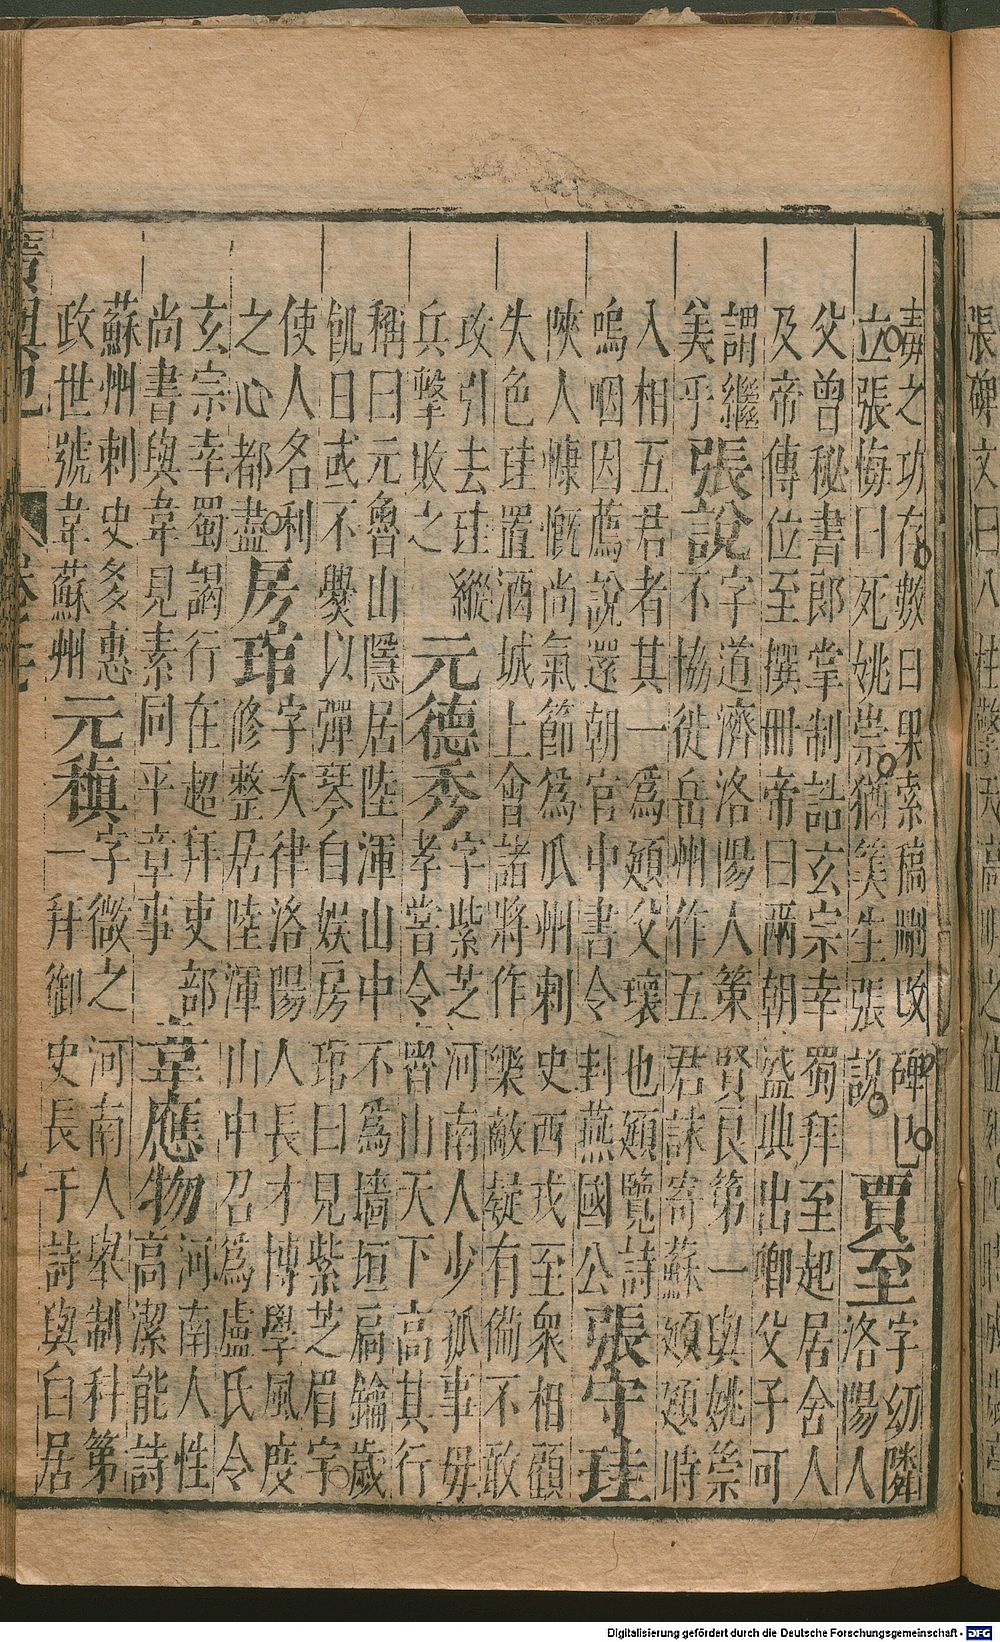 張碑文曰八柱擎天高明之位列四時成歲亭
毒之功存數日果索稿刪改碑已
立張悔曰死姚崇猶筭生張說
賈至
字幼隣
洛陽人
父曾秘書郎掌制誥玄宗幸蜀拜至起居舍人
及帝傳位至撰冊帝曰兩朝盛典出卿父子可
謂繼
美乎
張說
字道濟洛陽人策賢良第一與姚崇
不協徙岳州作五君詠寄蘇頲頲時
入相五君者其一爲頲父瓌也頲覽詩
嗚咽因薦說還朝官中書令封燕國公
張守珪
陜人慷慨尚氣節爲瓜州刺史西戎至衆相顧
失色珪置酒城上會諸將作樂敵疑有備不敢
攻引去珪縱
兵擊敗之
元德秀
字紫芝河南人少孤事母
孝嘗令魯山天下高其行
稱曰元魯山隱居陸渾山中不爲墻垣扃鑰歲
飢日或不爨以彈琴自娛房琯曰見紫芝眉宇
使人名利
之心都盡
房琯
字次律洛陽人長才博學風度
修整居陸渾山中召爲盧氏令
玄宗幸蜀謁行在超拜吏部
尚書與韋見素同平章事
韋應物
河南人性
高潔能詩
蘇州刺史多惠
政世號韋蘇州
元稹
字微之河南人舉制科第
一拜御史長于詩與白居
Digitalisierung gefördert durch die Deutsche Forschungsgemeinschaft - DFG